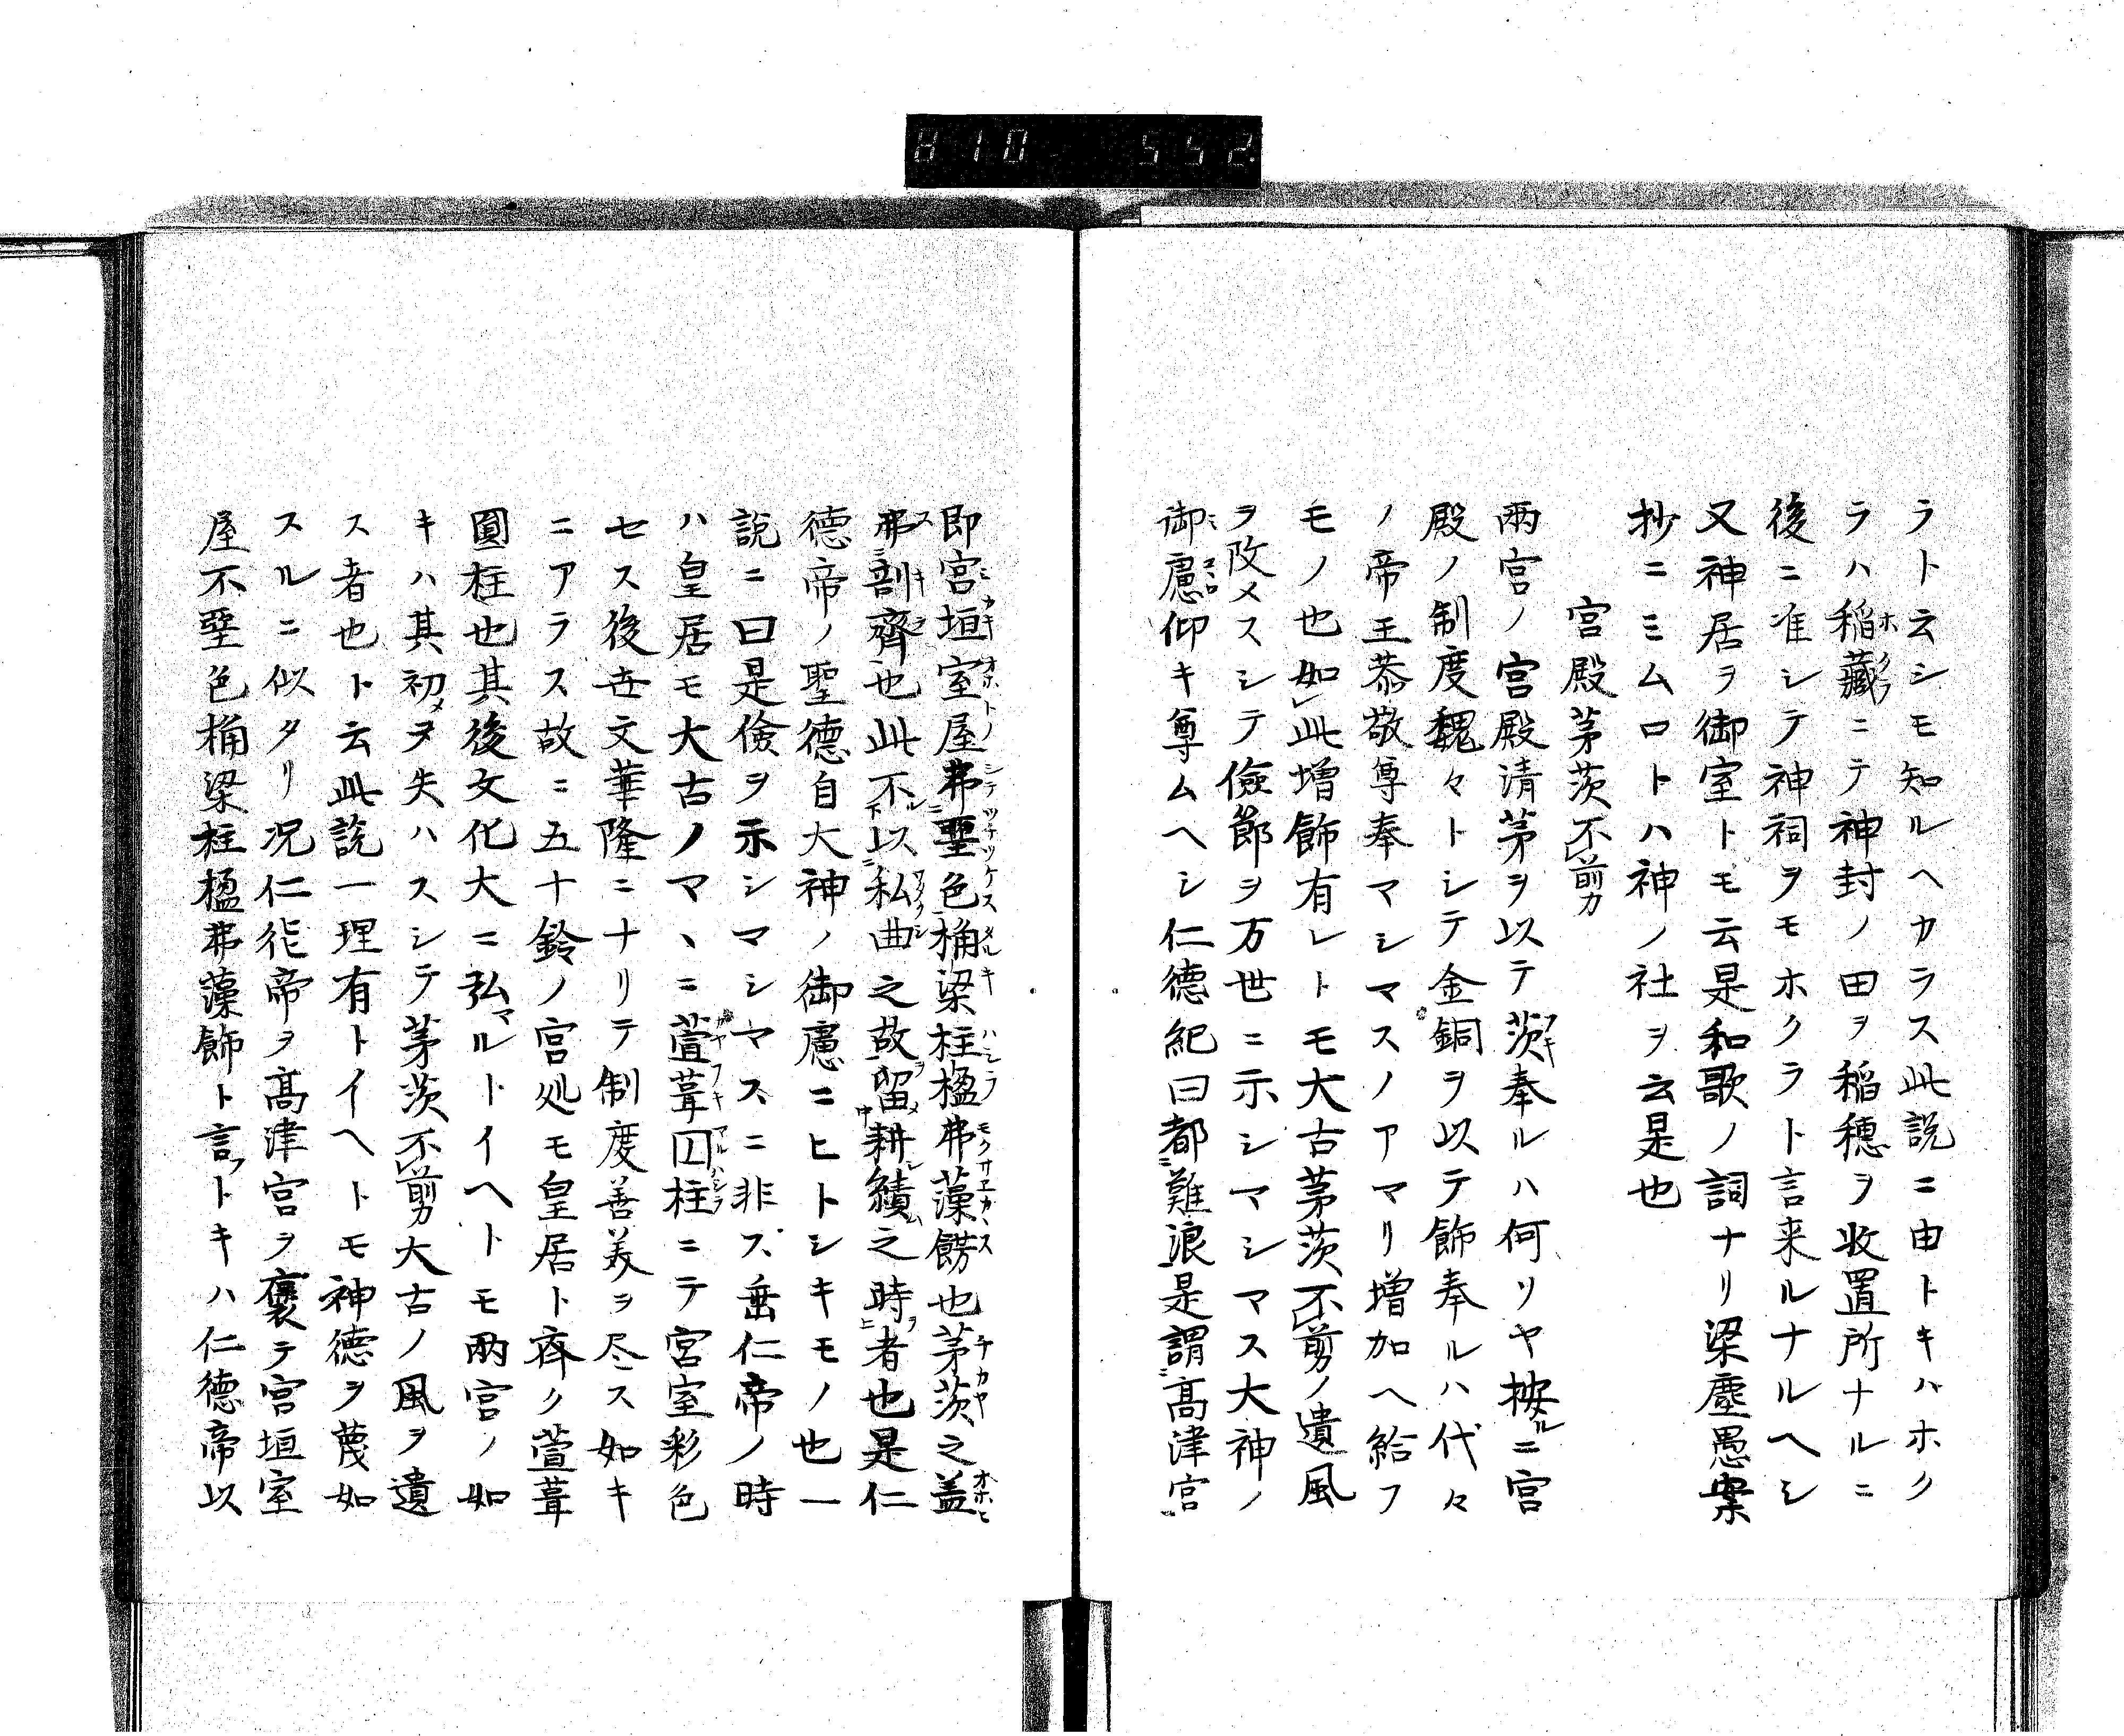 810 552.
ラト云シモ知ルヘカラス此説ニ由トキハホク
ラハ稲藏ニテ神封ノ田ヲ稲穗ヲ收置所ナルニ
後ニ准シテ神祠ヲモホクラト言来ルナルヘシ
又神居ヲ御室トモ云是和歌ノ詞ナリ梁塵愚案
抄ニミムロトハ神ノ社ヲ云是也
宮殿茅茨不剪力
兩宮ノ宮殿清茅ヲ以テ茨奉ルハ何リヤ按ルニ宮
殿ノ制度魏々トシテ金銅ヲ以テ飾奉ルハ代々
ノ帝王恭敬尊奉マシマスノアマリ増加ヘ給フ
モノ也如此増飾有レトモ大古茅茨不剪ノ遺風
ヲ改メスシテ儉節ヲ万世ニ示シマシマス大神ノ
御慮仰キ尊ムヘシ仁德紀曰都難浪是謂髙津宮
即宮垣室屋弗堊色桷梁柱楹弗藻餝也茅茨之盖
弗割齊也此不以私曲之故留耕績之時者也是仁
德帝ノ聖德自大神ノ御慮ニヒトシキモノ也一
説ニ曰是儉ヲ示シマシマスニ非ス垂仁帝ノ時
ハ皇居モ大古ノマヽニ萱葺柱ニテ宮室彩色
セス後世文華隆ニナリテ制度善美ヲ尽ス如キ
ニアラス故ニ五十鈴ノ宮処モ皇居ト齊ク萱葺
圓柱也其後文化大ニ弘マルトイヘトモ兩宮ノ如
キハ其初メヲ失ハスシテ茅茨不剪大古ノ風ヲ遺
ス者也ト云此説一理有トイヘトモ神德ヲ蔑如
スルニ似タリ况仁德帝ヲ髙津宮ヲ褒テ宮垣室
屋不堊色桷梁柱楹弗藻飾ト言フトキハ仁德帝以